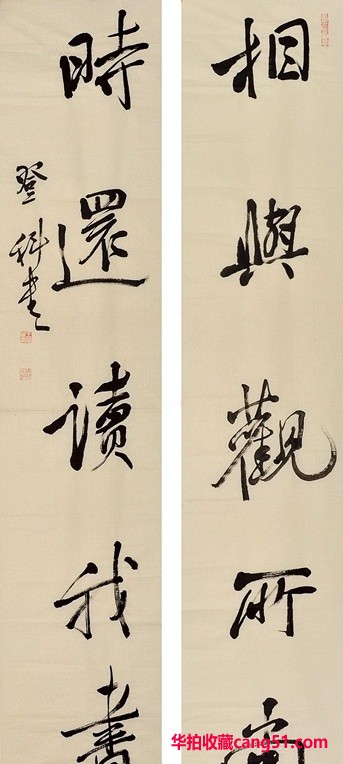 相與觀所尚
時還讀我書
登科書
华拍收藏cang51.com